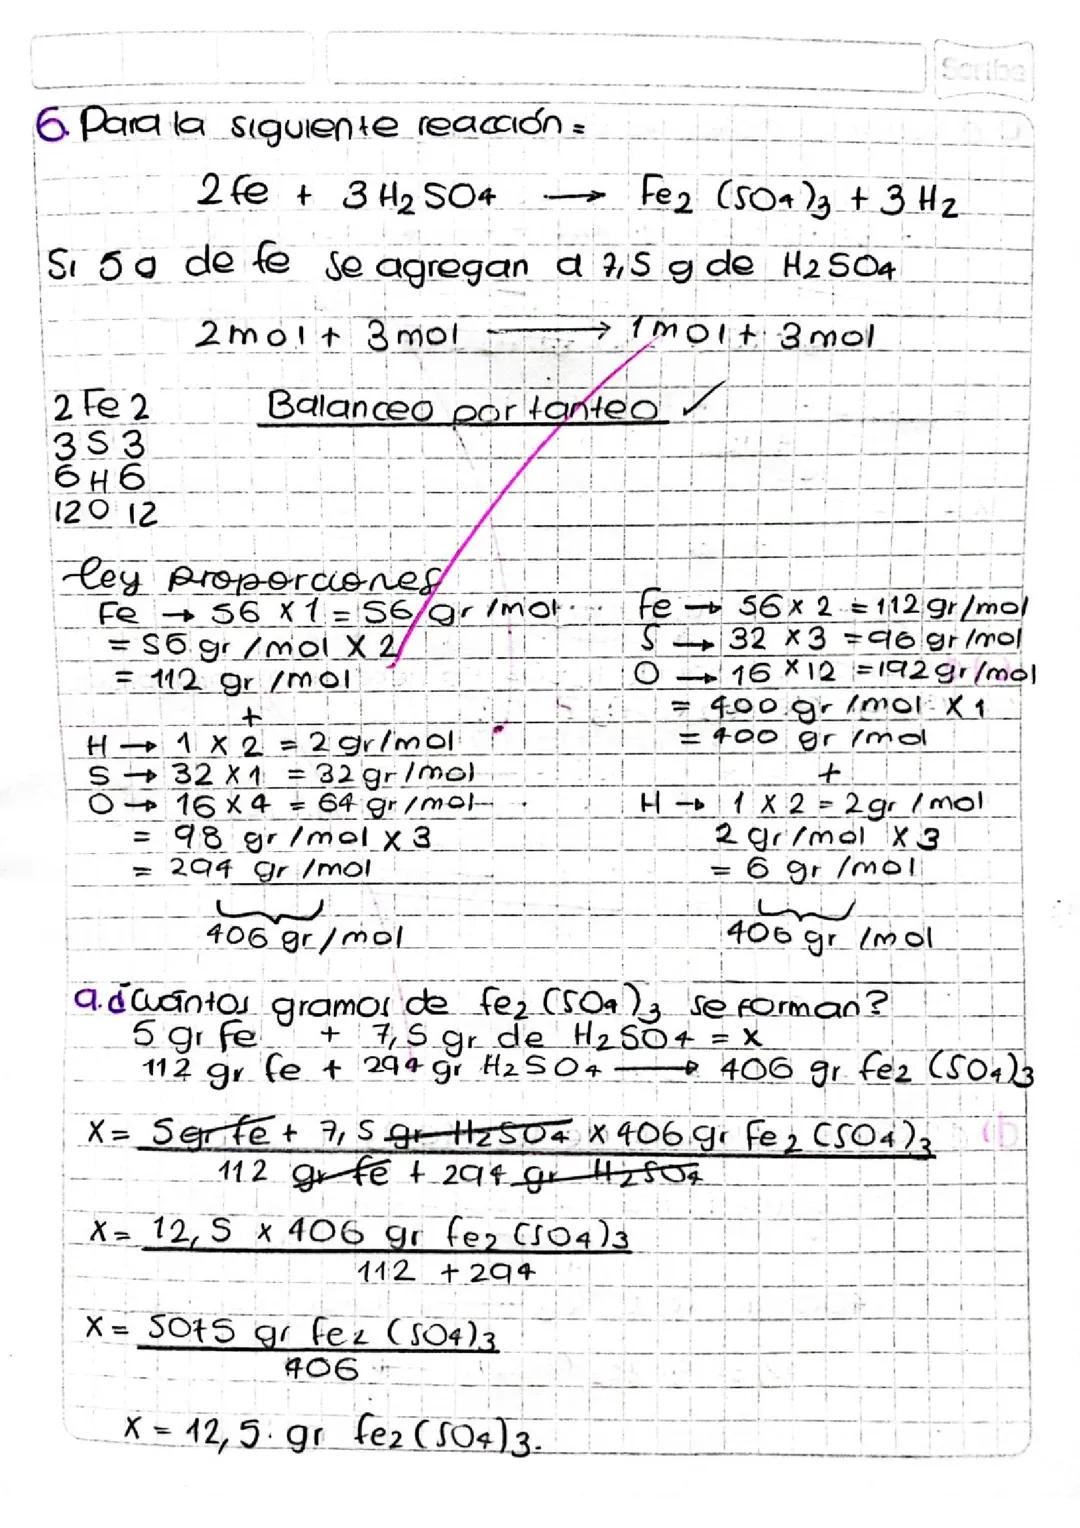 Scribe
6. Para la siguiente reacción =
2 fe + 3 H2 SO4 → Fe2 (SO4)3 + 3 H2
Si 5 g de fe se agregan a 7,5 g de H2SO4
2 mol + 3 mol → 1 mol + 3 mol
2 Fe 2
Balanceo por tanteo ✓
3 S 3
6 H 6
12 O 12
ley proporciones
Fe → 56 x 1 = 56 gr /mol
= 56 gr /mol x 2
= 112 gr /mol
+
H → 1 x 2 = 2 gr/mol
S → 32 x 1 = 32 gr/mol
O → 16 x 4 = 64 gr/mol
= 98 gr/mol x 3
= 294 gr /mol
406 gr/mol
fe → 56 x 2 = 112 gr/mol
S → 32 x 3 = 96 gr/mol
O → 16 x 12 = 192 gr/mol
= 400 gr /mol x 1
= 400 gr /mol
+
H → 1 x 2 = 2 gr /mol
2 gr/mol x 3
= 6 gr /mol
406 gr /mol
a. ¿Cuántos gramos de fe2 (SO4)3 se forman?
5 gr fe + 7,5 gr de H2SO4 = x
112 gr fe + 294 gr H2SO4 → 406 gr fe2 (SO4)3
X = 5 gr fe + 7,5 gr H2SO4 x 406 gr Fe2 (SO4)3
112 gr fe + 294 gr H2SO4
X = 12,5 x 406 gr fe2 (SO4)3
112 + 294
X = 5075 gr fe2 (SO4)3
406
X = 12,5 gr fe2 (SO4)3.